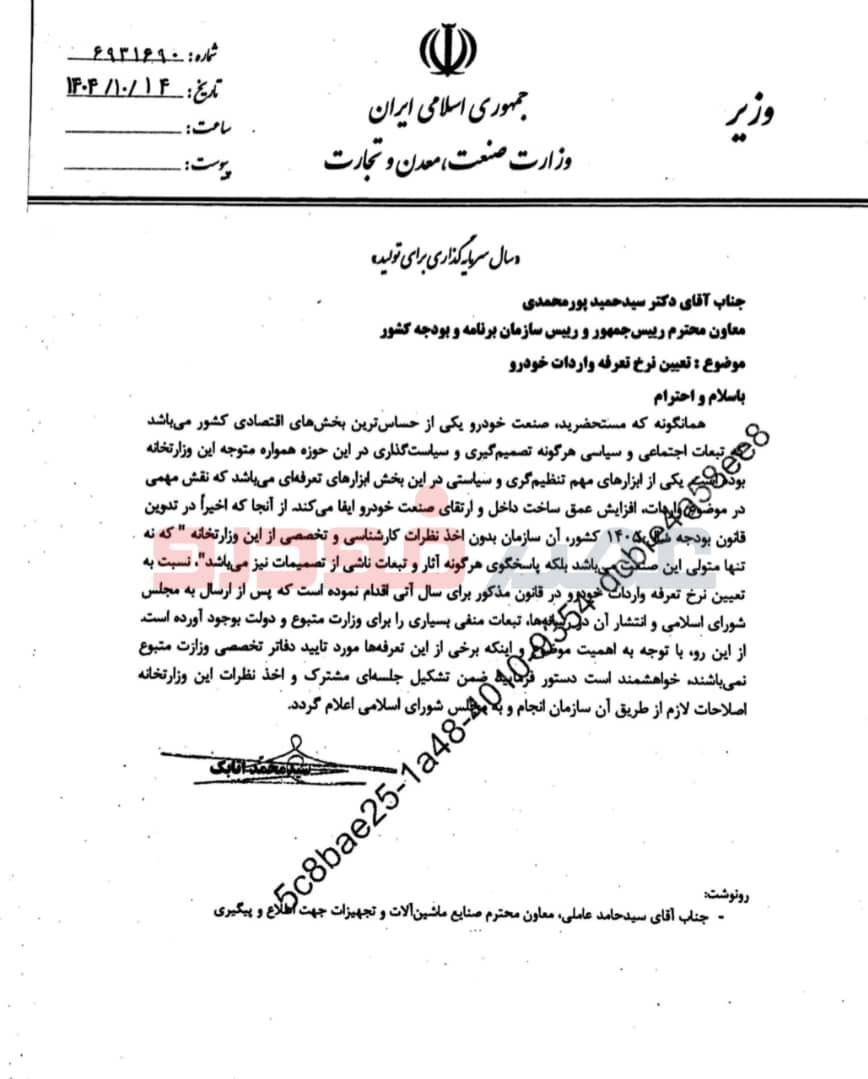 وزیر
جمهوری اسلامی ایران
وزارت صنعت، معدن و تجارت
شماره: ۶۹۳۱۶۹۰
تاریخ: ۱۴۰۴/۱۰/۱۴
ساعت:
پیوست:
«سال سرمایه‌گذاری برای تولید»
جناب آقای دکتر سیدحمید پورمحمدی
معاون محترم رییس‌جمهور و رییس سازمان برنامه و بودجه کشور
موضوع : تعیین نرخ تعرفه واردات خودرو
باسلام و احترام
همانگونه که مستحضرید، صنعت خودرو یکی از حساس‌ترین بخش‌های اقتصادی کشور می‌باشد
تبعات اجتماعی و سیاسی هرگونه تصمیم‌گیری و سیاست‌گذاری در این حوزه همواره متوجه این وزارتخانه
بوده است. یکی از ابزارهای مهم تنظیم‌گری و سیاستی در این بخش ابزارهای تعرفه‌ای می‌باشد که نقش مهمی
در موضوع واردات، افزایش عمق ساخت داخل و ارتقای صنعت خودرو ایفا می‌کند. از آنجا که اخیراً در تدوین
قانون بودجه سال ۱۴۰۵ کشور، آن سازمان بدون اخذ نظرات کارشناسی و تخصصی از این وزارتخانه " که نه
تنها متولی این صنعت می‌باشد بلکه پاسخگوی هرگونه آثار و تبعات ناشی از تصمیمات نیز می‌باشد"، نسبت به
تعیین نرخ تعرفه واردات خودرو در قانون مذکور برای سال آتی اقدام نموده است که پس از ارسال به مجلس
شورای اسلامی و انتشار آن در رسانه‌ها، تبعات منفی بسیاری را برای وزارت متبوع و دولت بوجود آورده است.
از این رو، با توجه به اهمیت موضوع و اینکه برخی از این تعرفه‌ها مورد تایید دفاتر تخصصی وزارت متبوع
نمی‌باشند، خواهشمند است دستور فرمایید ضمن تشکیل جلسه‌ای مشترک و اخذ نظرات این وزارتخانه
اصلاحات لازم از طریق آن سازمان انجام و به مجلس شورای اسلامی اعلام گردد.
سیدمحمد اتابک
رونوشت:
- جناب آقای سیدحامد عاملی، معاون محترم صنایع ماشین‌آلات و تجهیزات جهت اطلاع و پیگیری
عصر خودرو